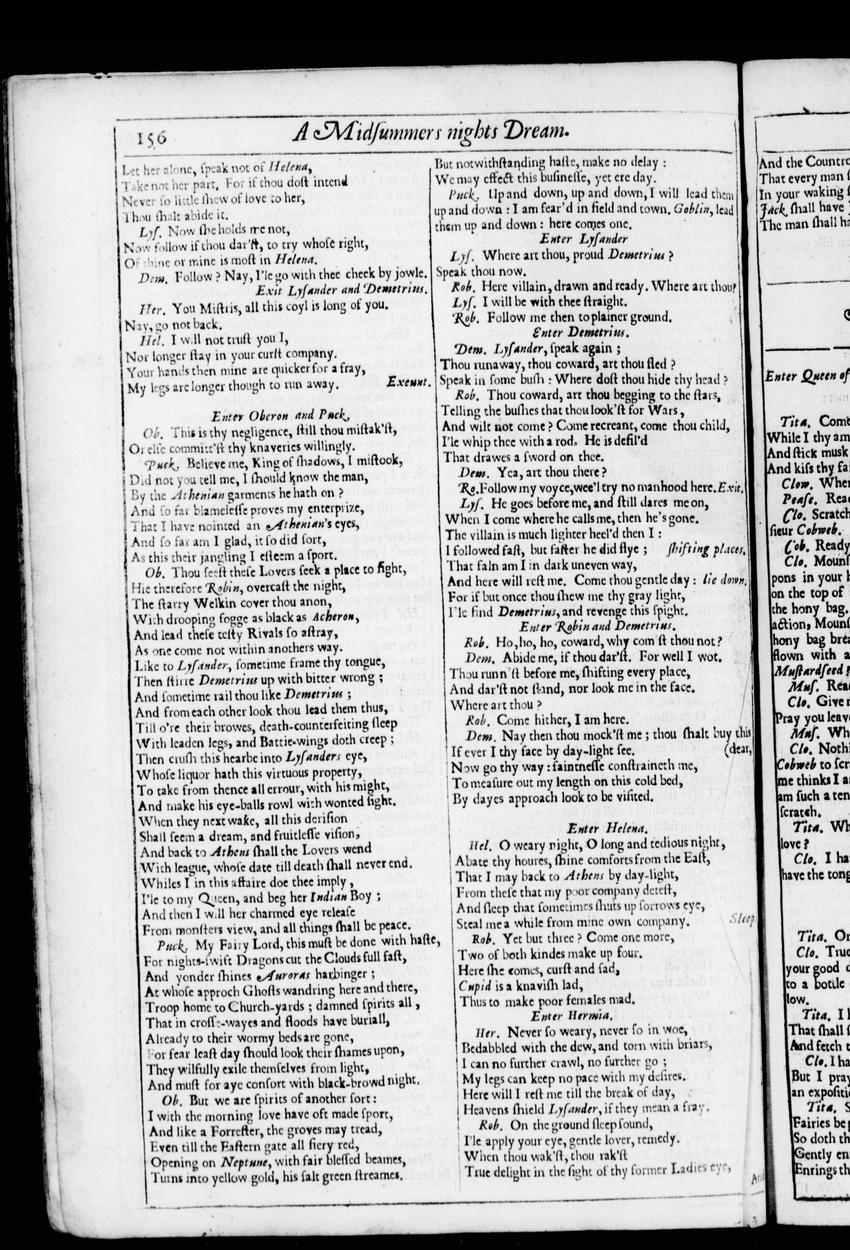 156
A Midſummers nights Dream.
Let her alone, ſpeak not of Helena,
Take not her part. For if thou doſt intend
Never ſo little ſhew of love to her,
Thou ſhalt abide it.
Lyſ. Now ſhe holds me not,
Now follow if thou dar'ſt, to try whoſe right,
Of thine or mine is moſt in Helena.
Dem. Follow? Nay, I'le go with thee cheek by jowle.
Exit Lyſander and Demetrius.
Her. You Miſtris, all this coyl is long of you.
Nay, go not back.
Hel. I will not truſt you I,
Nor longer ſtay in your curſt company.
Your hands then mine are quicker for a fray,
My legs are longer though to run away. Exeunt.
Enter Oberon and Puck.
Ob. This is thy negligence, ſtill thou miſtak'ſt,
Or elſe committ'ſt thy knaveries willingly.
Puck. Believe me, King of ſhadows, I miſtook,
Did not you tell me, I ſhould know the man,
By the Athenian garments he hath on?
And ſo far blameleſſe proves my enterprize,
That I have nointed an Athenian's eyes,
And ſo far am I glad, it ſo did ſort,
As this their jangling I eſteem a ſport.
Ob. Thou ſeeſt theſe Lovers ſeek a place to fight,
Hie therefore Robin, overcaſt the night,
The ſtarry Welkin cover thou anon,
With drooping fogge as black as Acheron,
And lead theſe teſty Rivals ſo aſtray,
As one come not within anothers way.
Like to Lyſander, ſometime frame thy tongue,
Then ſtirre Demetrius up with bitter wrong;
And ſometime rail thou like Demetrius;
And from each other look thou lead them thus,
Till o're their browes, death-counterfeiting ſleep
With leaden legs, and Battie-wings doth creep;
Then cruſh this hearbe into Lyſanders eye,
Whoſe liquor hath this virtuous property,
To take from thence all errour, with his might,
And make his eye-balls rowl with wonted ſight.
When they next wake, all this deriſion
Shall ſeem a dream, and fruitleſſe viſion,
And back to Athens ſhall the Lovers wend
With league, whoſe date till death ſhall never end.
Whiles I in this affaire doe thee imply,
I'le to my Queen, and beg her Indian Boy;
And then I will her charmed eye releaſe
From monſters view, and all things ſhall be peace.
Puck. My Fairy Lord, this muſt be done with haſte,
For nights-ſwift Dragons cut the Clouds full faſt,
And yonder ſhines Auroras harbinger;
At whoſe approch Ghoſts wandring here and there,
Troop home to Church-yards; damned ſpirits all,
That in croſſe-wayes and floods have buriall,
Already to their wormy beds are gone,
For fear leaſt day ſhould look their ſhames upon,
They wilfully exile themſelves from light,
And muſt for aye conſort with black-browd night.
Ob. But we are ſpirits of another ſort:
I with the morning love have oft made ſport,
And like a Forreſter, the groves may tread,
Even till the Eaſtern gate all fiery red,
Opening on Neptune, with fair bleſſed beames,
Turns into yellow gold, his ſalt green ſtreames.
But notwithſtanding haſte, make no delay:
We may effect this buſineſſe, yet ere day.
Puck. Up and down, up and down, I will lead them
up and down: I am fear'd in field and town. Goblin, lead
them up and down: here comes one.
Enter Lyſander
Lyſ. Where art thou, proud Demetrius?
Speak thou now.
Rob. Here villain, drawn and ready. Where art thou?
Lyſ. I will be with thee ſtraight.
Rob. Follow me then to plainer ground.
Enter Demetrius.
Dem. Lyſander, ſpeak again;
Thou runaway, thou coward, art thou fled?
Speak in ſome buſh: Where doſt thou hide thy head?
Rob. Thou coward, art thou begging to the ſtars,
Telling the buſhes that thou look'ſt for Wars,
And wilt not come? Come recreant, come thou child,
I'le whip thee with a rod. He is defil'd
That drawes a ſword on thee.
Dem. Yea, art thou there?
Ro. Follow my voyce, wee'l try no manhood here. Exit.
Lyſ. He goes before me, and ſtill dares me on,
When I come where he calls me, then he's gone.
The villain is much lighter heel'd then I:
I followed faſt, but faſter he did flye; ſhifting places.
That faln am I in dark uneven way,
And here will reſt me. Come thou gentle day: lie down.
For if but once thou ſhew me thy gray light,
I'le find Demetrius, and revenge this ſpight.
Enter Robin and Demetrius.
Rob. Ho, ho, ho, coward, why com'ſt thou not?
Dem. Abide me, if thou dar'ſt. For well I wot,
Thou runn'ſt before me, ſhifting every place,
And dar'ſt not ſtand, nor look me in the face.
Where art thou?
Rob. Come hither, I am here.
Dem. Nay then thou mock'ſt me; thou ſhalt buy this
If ever I thy face by day-light ſee. (dear,
Now go thy way: faintneſſe conſtraineth me,
To meaſure out my length on this cold bed,
By dayes approach look to be viſited.
Enter Helena.
Hel. O weary night, O long and tedious night,
Abate thy houres, ſhine comforts from the Eaſt,
That I may back to Athens by day-light,
From theſe that my poor company deteſt,
And ſleep that ſometimes ſhuts up ſorrows eye,
Steal me a while from mine own company. Sleep
Rob. Yet but three? Come one more,
Two of both kindes make up four.
Here ſhe comes, curſt and ſad,
Cupid is a knaviſh lad,
Thus to make poor females mad.
Enter Hermia.
Her. Never ſo weary, never ſo in woe,
Bedabbled with the dew, and torn with briars,
I can no further crawl, no further go;
My legs can keep no pace with my deſires.
Here will I reſt me till the break of day,
Heavens ſhield Lyſander, if they mean a fray.
Rob. On the ground ſleep ſound,
I'le apply your eye, gentle lover, remedy.
When thou wak'ſt, thou rak'ſt
True delight in the ſight of thy former Ladies eye,
And the
That every man
In your waking
Jack ſhall have
The man ſhall
Enter Queen of
Tita.
While I thy am
And ſtick musk
And kiſs thy
Clow.
Peaſe.
Clo. Scratch
ſieur Cobweb.
Cob. Ready
Clo.
pons in your
on the top of
the hony bag.
action,
hony bag
flown with a
Muſtardſeed?
Muſ.
Clo. Give
Pray you
Muſ.
Clo.
Cobweb to
me thinks I
am ſuch a
ſcratch.
Tita.
love?
Clo. I
have the
Tita.
Clo. True
your good
to a bottle
low.
Tita. I
That ſhall
And fetch
Clo. I
But I pray
an
Tita.
Fairies be
So doth
Gently
Enrings